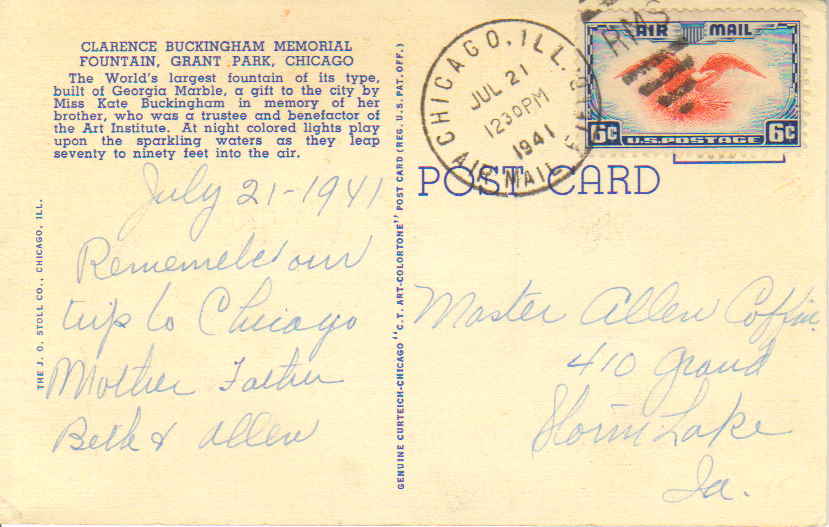 CLARENCE BUCKINGHAM MEMORIAL
FOUNTAIN, GRANT PARK, CHICAGO
The World's largest fountain of its type,
built of Georgia Marble, a gift to the city by
Miss Kate Buckingham in memory of her
brother, who was a trustee and benefactor of
the Art Institute. At night colored lights play
upon the sparkling waters as they leap
seventy to ninety feet into the air.
July 21-1941
Remember our
trip to Chicago
Mother Father
Beth & Allen
THE J. O. STOLL CO., CHICAGO, ILL.
GENUINE CURTEICH-CHICAGO "C.T. ART-COLORTONE" POST CARD (REG. U.S. PAT. OFF.)
CHICAGO, ILL.
JUL 21
1230PM
1941
AIR MAIL
RMS
AIR MAIL
6c U.S. POSTAGE 6c
POST CARD
Master Allen Coffin
410 Grand
Storm Lake
Ia.